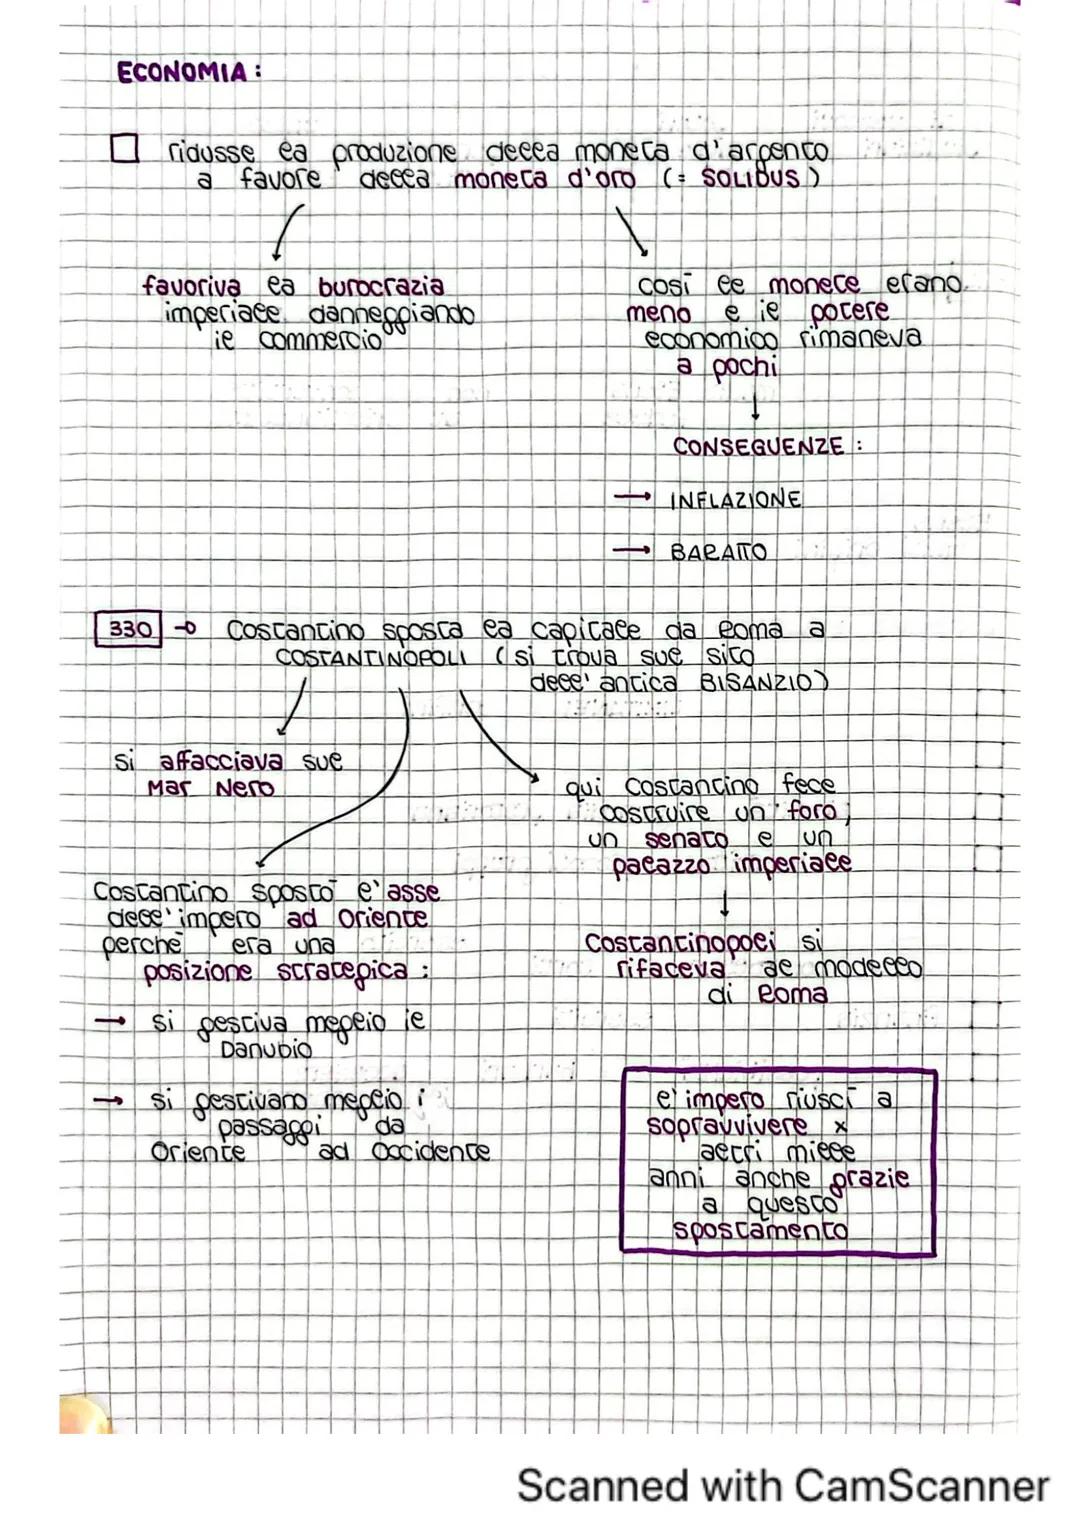 ECONOMIA :
ridusse la produzione della moneta d'argento
a favore della moneta d'oro (= SOLIDUS)
favoriva la burocrazia
imperiale danneggiando
il commercio
così le monete erano
meno e il potere
economico rimaneva
a pochi
CONSEGUENZE :
→ INFLAZIONE
→ BARATTO
330 → Costantino sposta la capitale da Roma a
COSTANTINOPOLI (si trova sul sito
dell'antica BISANZIO)
si affacciava sul
Mar Nero
qui Costantino fece
costruire un foro,
un senato e un
palazzo imperiale
Costantino spostò l'asse
dell'impero ad Oriente
perchè era una
posizione strategica :
→ si gestiva meglio il
Danubio
→ si gestivano meglio i
passaggi da
Oriente ad Occidente
Costantinopoli si
rifaceva al modello
di Roma
l'impero riuscì a
sopravvivere x
altri mille
anni anche grazie
a questo
spostamento
Scanned with CamScanner